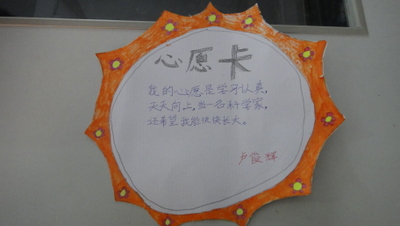 心愿卡
我的心愿是学习认真,
天天向上,当一名科学家,
还希望我能快快长大。
卢俊辉